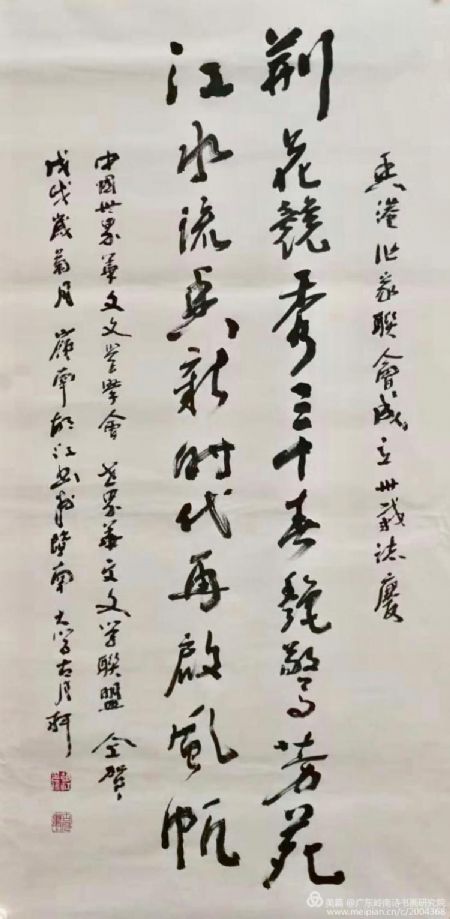 香港作家聯會成立卅載誌慶
荊花競秀三十春艷驚芳苑
江水流香新时代再啟風帆
中國世界華文文學學會 世界華文文学聯盟 仝賀
戊戌歲菊月 嶺南胡江書於暨南大学古月軒
美篇 @广东岭南诗书画研究院
www.meipian.cn/c/2004368